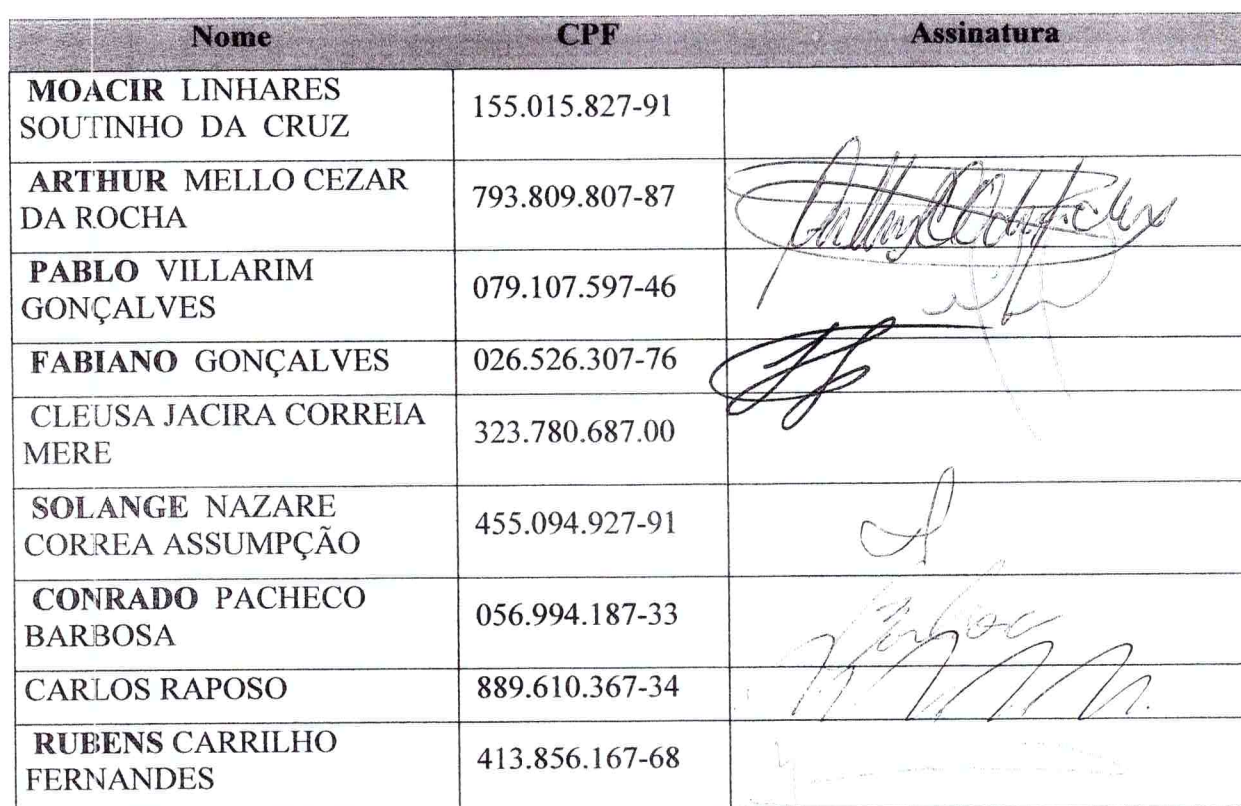 Nome CPF Assinatura
MOACIR LINHARES
SOUTINHO DA CRUZ
155.015.827-91
ARTHUR MELLO CEZAR
DA ROCHA
793.809.807-87
PABLO VILLARIM
GONÇALVES
079.107.597-46
FABIANO GONÇALVES
026.526.307-76
CLEUSA JACIRA CORREIA
MERE
323.780.687.00
SOLANGE NAZARE
CORREA ASSUMPÇÃO
455.094.927-91
CONRADO PACHECO
BARBOSA
056.994.187-33
CARLOS RAPOSO
889.610.367-34
RUBENS CARRILHO
FERNANDES
413.856.167-68